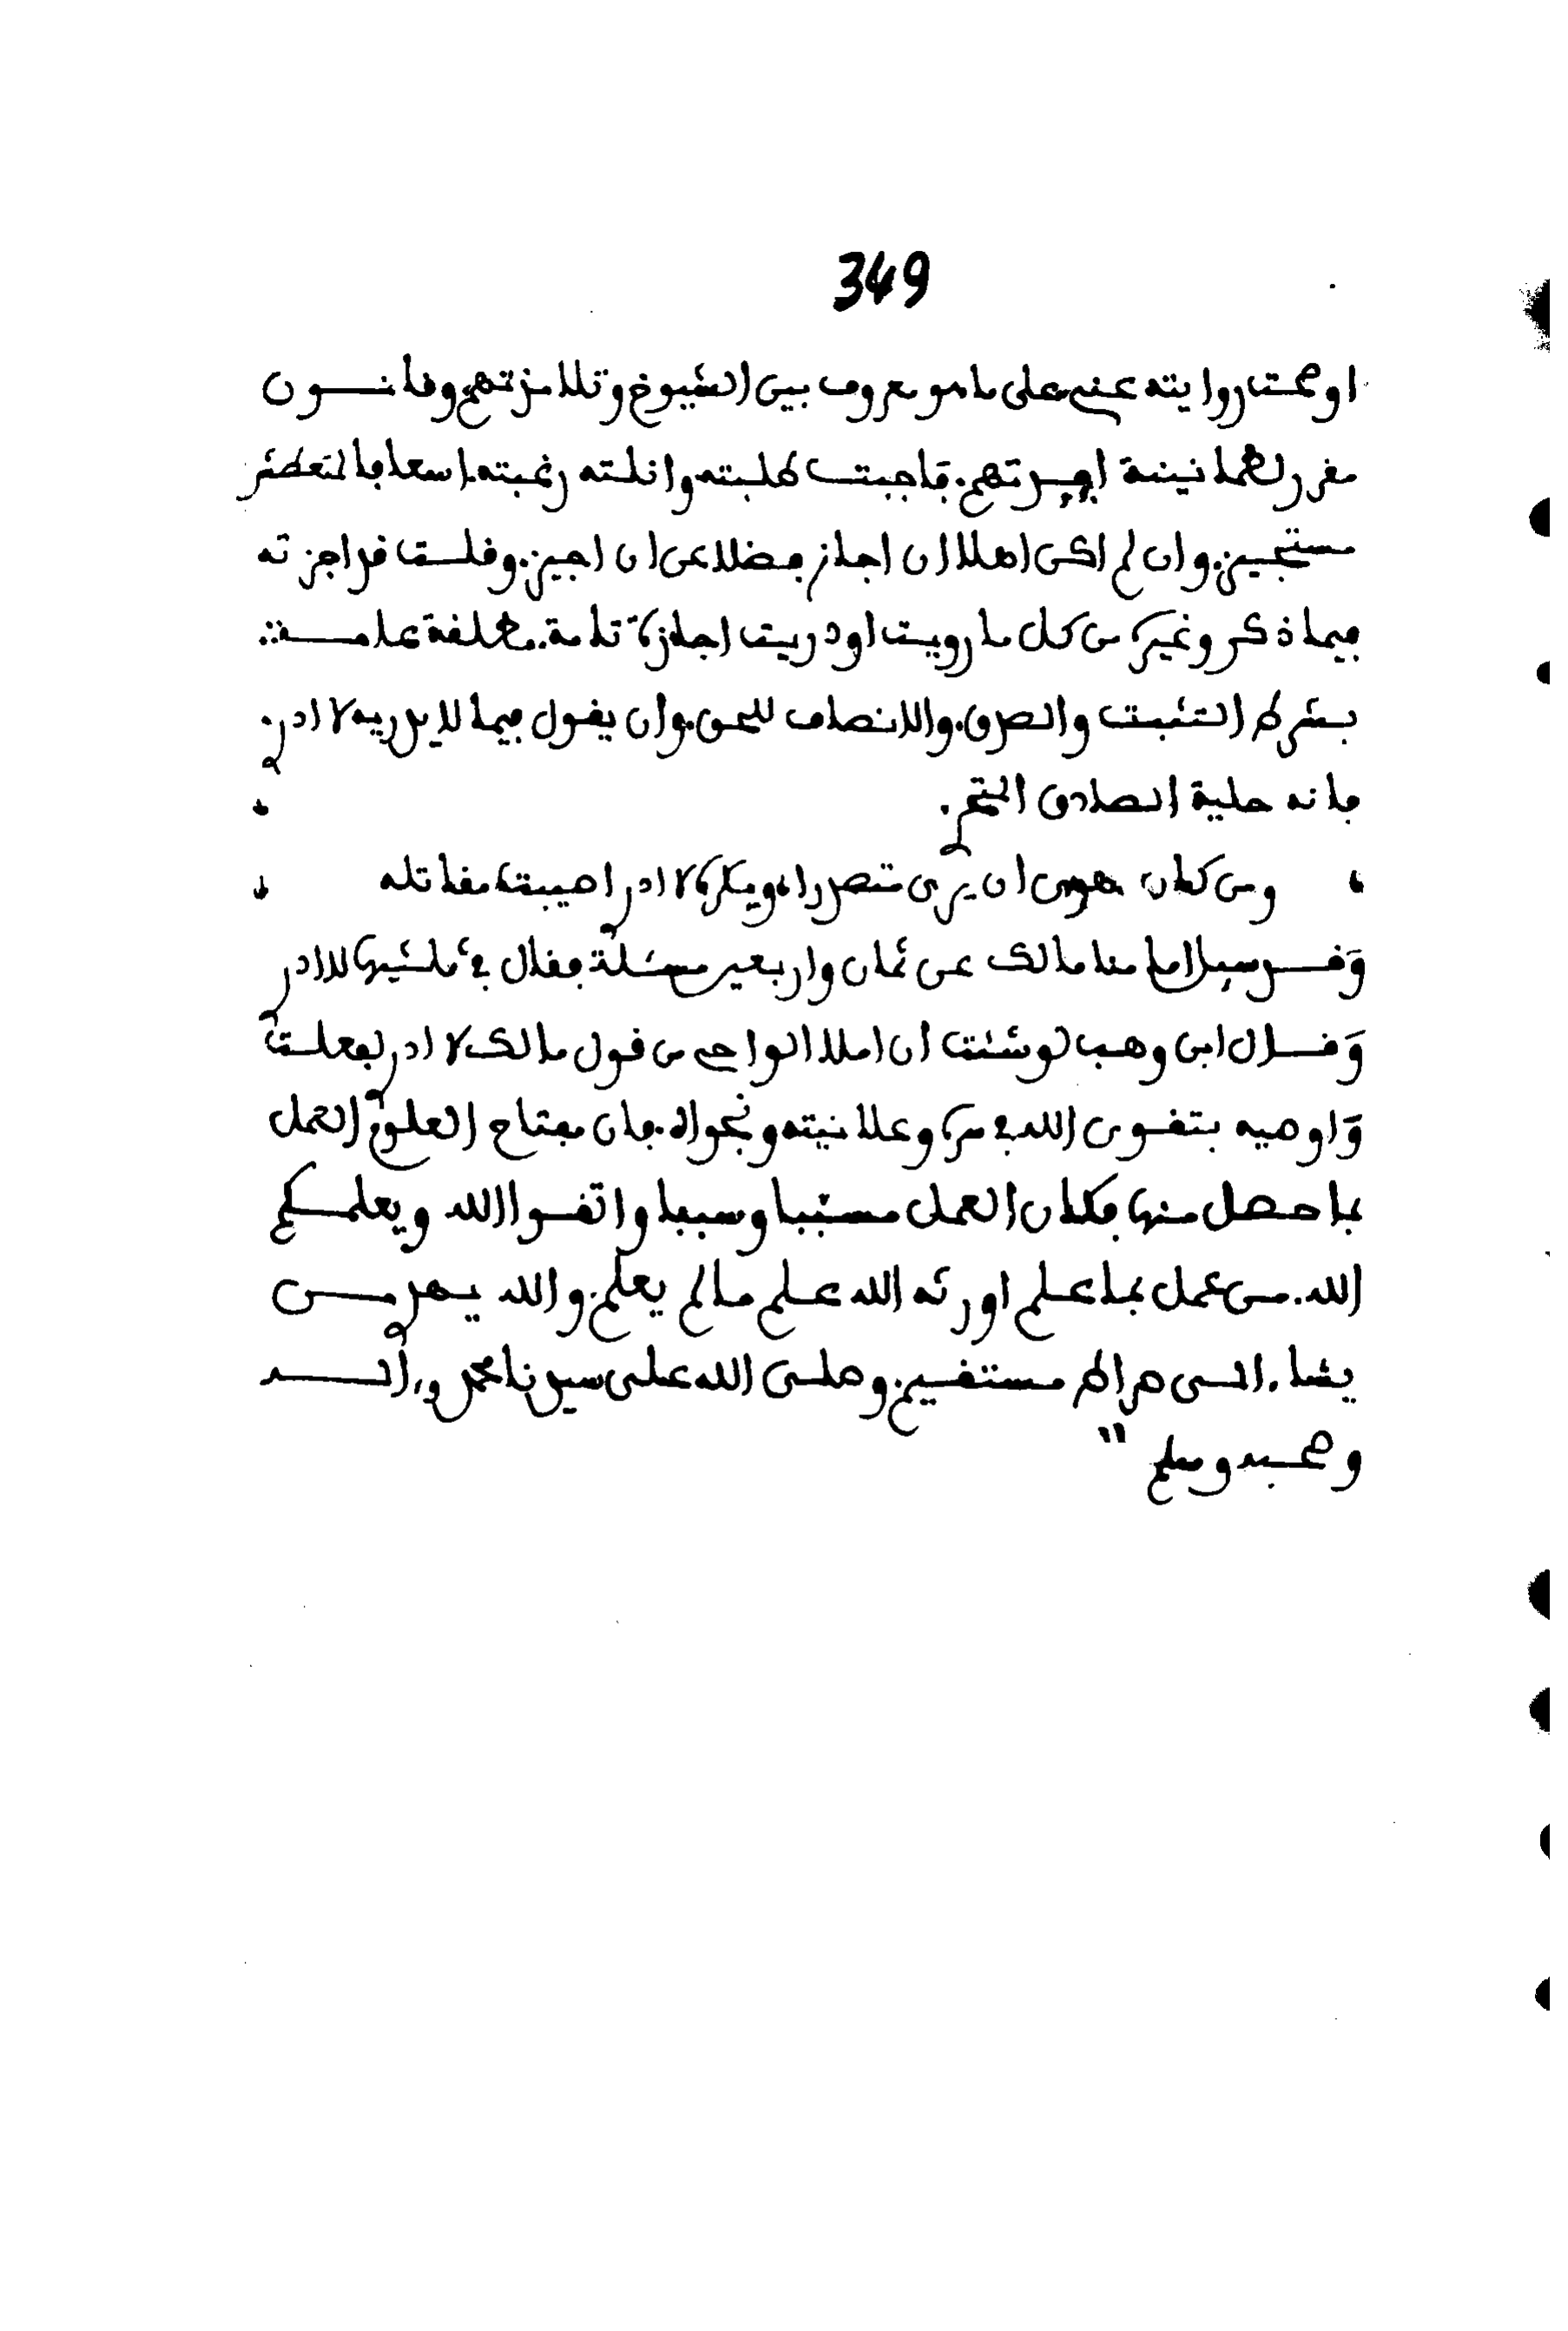 349
او صحت روايته عني على ما هو معروف بين الشيوخ وتلامذتهم وقانون
مقرر لطمانينة تهم. فاجبت طلبته وانلته رغبته اسعافا لتعطش
مستجيز. وان لم اكن اهلا ان اجاز فضلا عن ان اجيز. وقلت قد اجزته
فيما ذكر وغيره من كل ما رويت او دريت اجازة تامة. مطلقة عامة.
بشرط التثبت والصدق. والانصاف للحق. وان يقول فيما لا يدريه لا ادري.
فانه حلية الصادق
ومن كان يهوى ان يرى متصدرا، ويكره لا ادري اصيبت مقاتله
وَقد سيل امامنا مالك عن ثمان واربعين مسئلة فقال في ثلثيها لا ادري
وَقال ابن وهب لو شئت أن املا الواحي من قول مالك لا ادري لفعلت
وَاوصيه بتقوى الله في سره وعلانيته ونجواه. فان مفتاح العلوم العمل
بما حصل منها فكان العمل مسببا وسببا واتقوا الله ويعلمكم
الله. من عمل بما علم اورثه الله علم ما لم يعلم. والله يهدي من
يشاء الى صراط مستقيم. وصلى الله على سيدنا محمد وءاله
وصحبه وسلم "